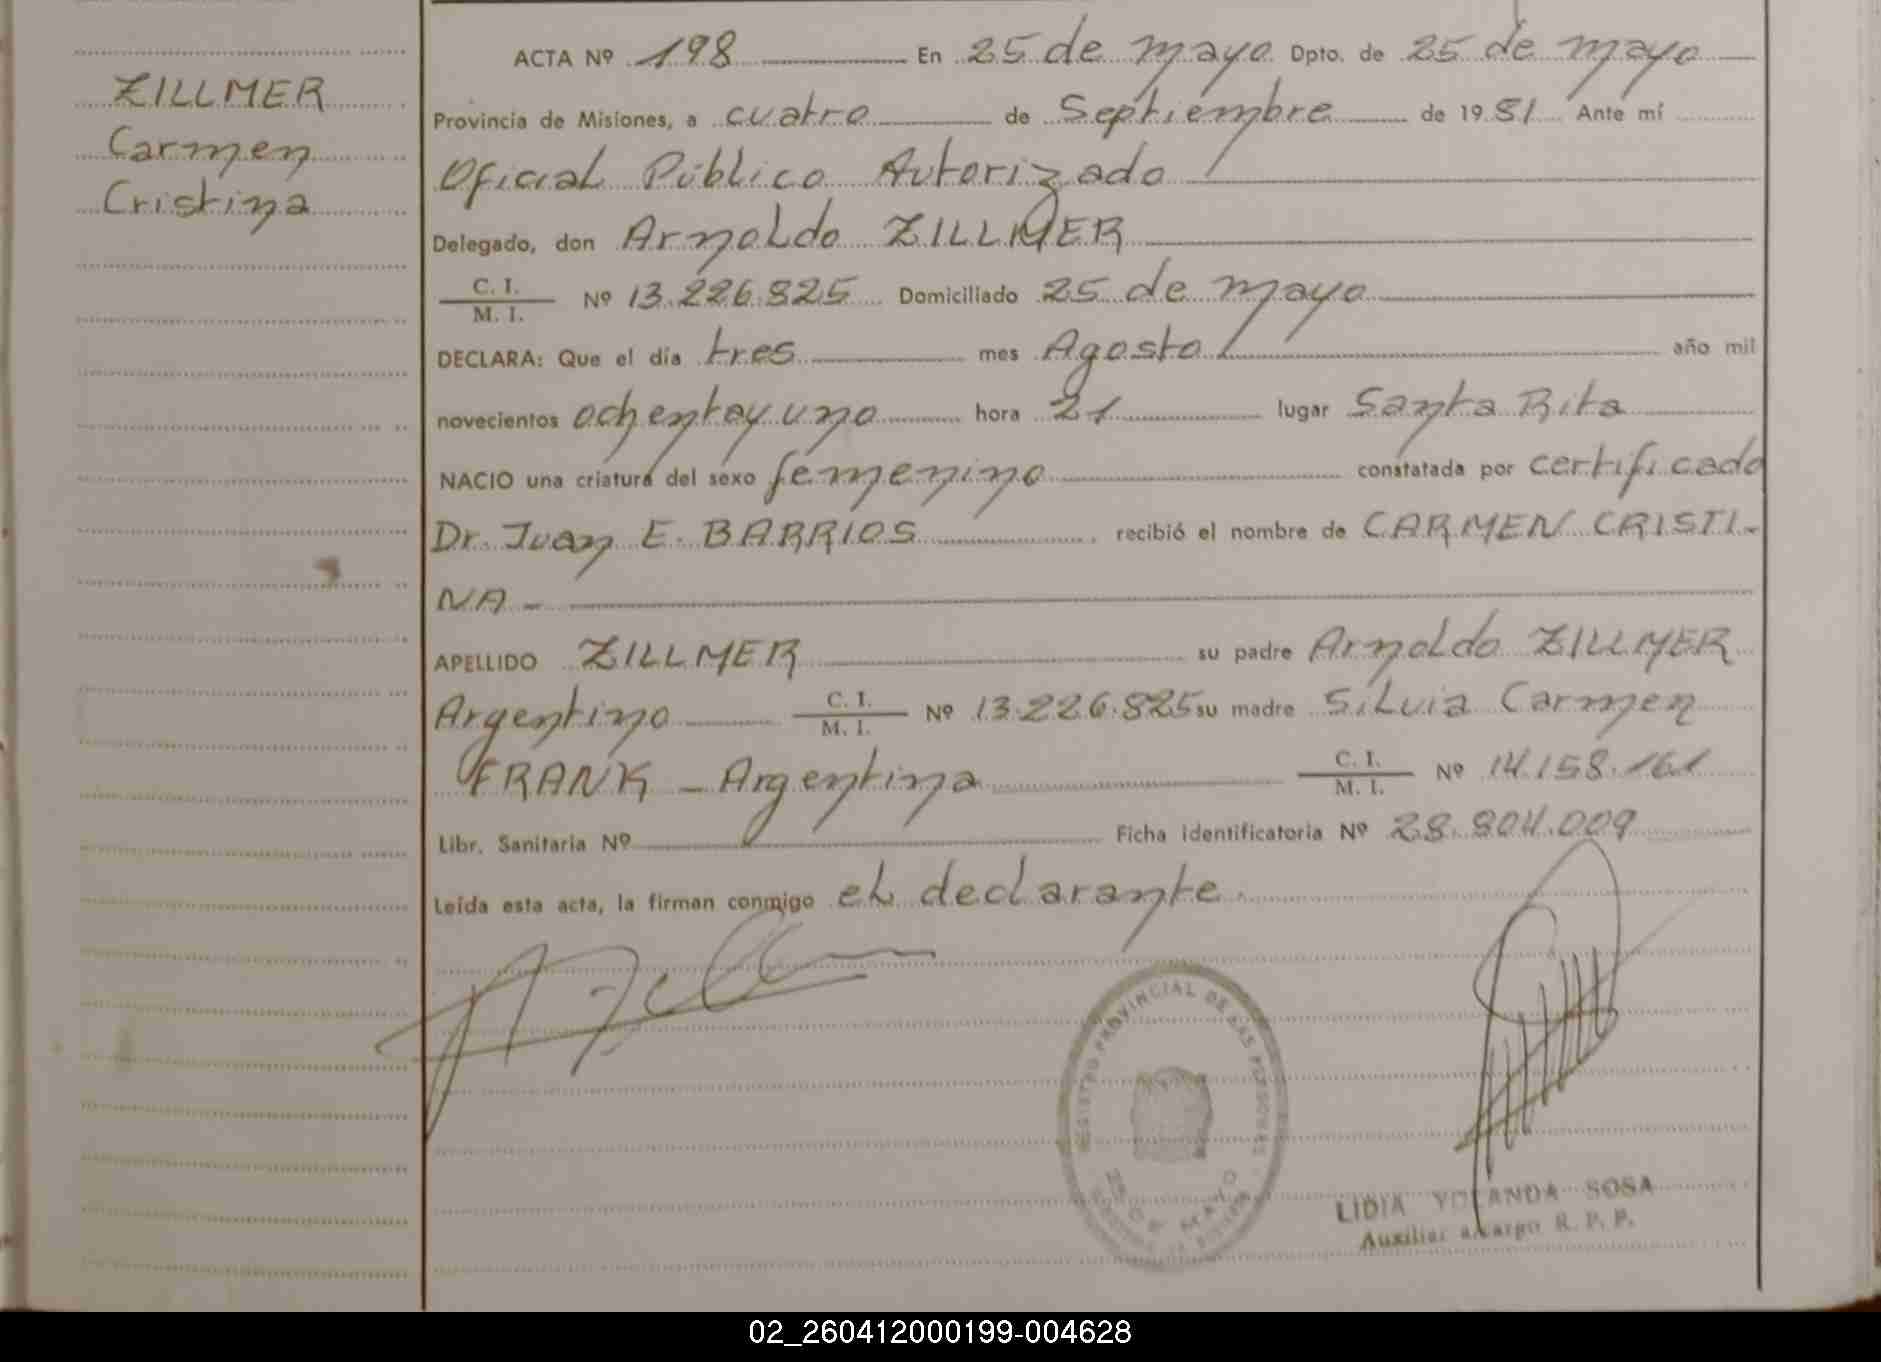 ZILLMER
Carmen
Cristina
ACTA Nº 198 En 25 de mayo Dpto. de 25 de mayo
Provincia de Misiones, a cuatro de Septiembre de 1981 Ante mí
Oficial Público Autorizado
Delegado, don Arnoldo ZILLMER
C. I.
M. I. Nº 13.226.825 Domiciliado 25 de mayo
DECLARA: Que el día tres mes Agosto año mil
novecientos ochentay uno hora 21 lugar Santa Rita
NACIO una criatura del sexo femenino constatada por certificado
Dr. Juan E. BARRIOS recibió el nombre de CARMEN CRISTI-
NA-
APELLIDO ZILLMER su padre Arnoldo ZILLMER
Argentino C. I. M. I. Nº 13.226.825 su madre Silvia Carmen
FRANK - Argentina C. I. M. I. Nº 14.158.161
Libr. Sanitaria Nº Ficha identificatoria Nº 28.804.009
Leída esta acta, la firman conmigo el declarante.
REGISTRO PROVINCIAL DE LAS PERSONAS
25 DE MAYO
LIDIA YOLANDA SOSA
Auxiliar a cargo R. P. P.
02_260412000199-004628